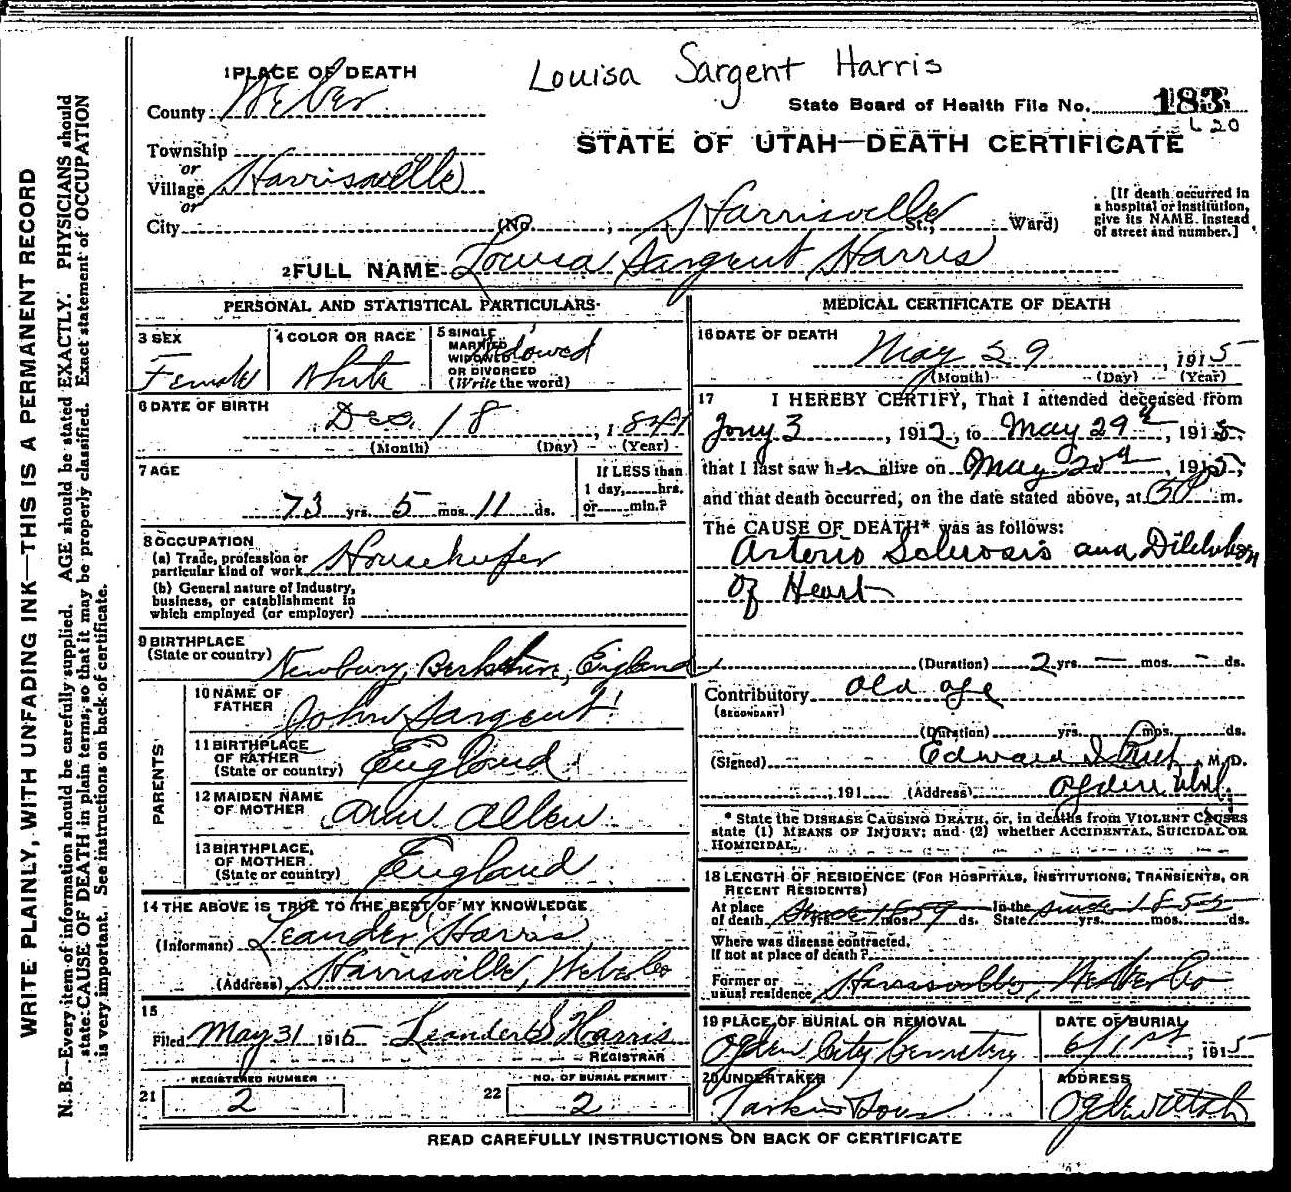 Louisa Sargent Harris
1 PLACE OF DEATH
County Weber
State Board of Health File No. 183
620
STATE OF UTAH—DEATH CERTIFICATE
Township
or
Village Harrisville
or
City (No. , Harrisville St.; Ward)
[If death occurred in
a hospital or institution,
give its NAME. Instead
of street and number.]
2 FULL NAME Louisa Sargent Harris
PERSONAL AND STATISTICAL PARTICULARS
3 SEX
Female
4 COLOR OR RACE
White
5 SINGLE
MARRIED
WIDOWED
OR DIVORCED
(Write the word)
Widowed
6 DATE OF BIRTH
Dec. 18, 1841
(Month) (Day) (Year)
7 AGE
73 yrs. 5 mos. 11 ds.
If LESS than
1 day, hrs.
or min.?
8 OCCUPATION
(a) Trade, profession or
particular kind of work Housekeeper
(b) General nature of Industry,
business, or establishment in
which employed (or employer)
9 BIRTHPLACE
(State or country) Newbury, Berkshire, England
PARENTS
10 NAME OF
FATHER John Sargent
11 BIRTHPLACE
OF FATHER
(State or country) England
12 MAIDEN NAME
OF MOTHER Ann Allen
13 BIRTHPLACE,
OF MOTHER.
(State or country) England
14 THE ABOVE IS TRUE TO THE BEST OF MY KNOWLEDGE
(Informant) Leander Harris,
(Address) Harrisville, Weber Co
15
Filed May 31 1915 Leander S Harris
REGISTRAR
REGISTERED NUMBER
21 2
NO. OF BURIAL PERMIT
22 2
MEDICAL CERTIFICATE OF DEATH
16 DATE OF DEATH
May 29, 1915
(Month) (Day) (Year)
17 I HEREBY CERTIFY, That I attended deceased from
3, 1912, to May 29th, 1915,
that I last saw her alive on May , 1915,
and that death occurred, on the date stated above, at m.
The CAUSE OF DEATH* was as follows:
Arterio Sclerosis and
of Heart
(Duration) 2 yrs. — mos. - ds.
Contributory old age
(SECONDARY)
(Duration) yrs. mos. ds.
(Signed) Edward I , M.D.
, 191 (Address) Ogden Utah.
* State the DISEASE CAUSING DEATH, or, in deaths from VIOLENT CAUSES
state (1) MEANS OF INJURY; and (2) whether ACCIDENTAL, SUICIDAL OR
HOMICIDAL.
18 LENGTH OF RESIDENCE (FOR HOSPITALS, INSTITUTIONS, TRANSIENTS, OR
RECENT RESIDENTS)
At place
of death since 1859 yrs. mos. ds.
In the
State since 1855 yrs. mos. ds.
Where was disease contracted,
If not at place of death?
Former or
usual residence Harrisville, Weber Co
19 PLACE OF BURIAL OR REMOVAL
Ogden City Cemetery
DATE OF BURIAL
6/1st, 1915
20 UNDERTAKER
Larkin Sons
ADDRESS
Ogden Utah
READ CAREFULLY INSTRUCTIONS ON BACK OF CERTIFICATE
WRITE PLAINLY, WITH UNFADING INK—THIS IS A PERMANENT RECORD
N. B.—Every item of information should be carefully supplied. AGE should be stated EXACTLY. PHYSICIANS should
state CAUSE OF DEATH in plain terms, so that it may be properly classified. Exact statement of OCCUPATION
is very important. See instructions on back of certificate.